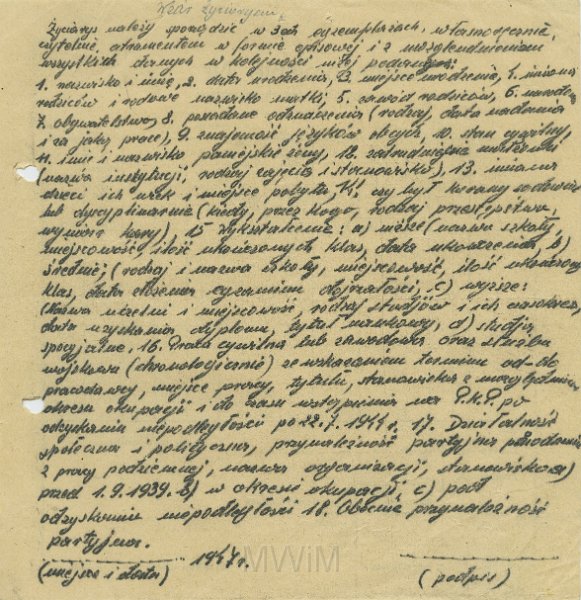 Wzór życiorysu
Życiorys należy sporządzić w 3ech egzemplarzach, własnoręcznie,
czytelnie, atramentem w formie opisowej i z uwzględnieniem
wszystkich danych w kolejności niżej podanych:
1. nazwisko i imię, 2. data urodzenia, 3. miejsce urodzenia, 4. imiona
rodziców i rodowe nazwisko matki, 5. zawód rodziców, 6. narodow.
7. obywatelstwo, 8. posiadane odznaczenia (rodzaj, data nadania
i za jaką pracę), 9. znajomość języków obcych, 10. stan cywilny,
11. imię i nazwisko panieńskie żony, 12. zatrudnienie małżonki
(nazwa instytucji, rodzaj zajęcia i stanowisko), 13. imiona
dzieci ich wiek i miejsce pobytu, 14. czy był karany sądownie
lub dyscyplinarnie (kiedy, przez kogo, rodzaj przestępstwa,
wymiar kary), 15 Wykształcenie: a) niższe (nazwa szkoły,
miejscowość, ilość ukończonych klas, data ukończenia, b)
średnie, (rodzaj i nazwa szkoły, miejscowość, ilość ukończony
klas, data złożenia egzaminu dojrzałości, c) wyższe:
(nazwa uczelni i miejscowość, rodzaj studjów i ich zakres,
data uzyskania dyplomu, tytuł naukowy, d) studja
specjalne. 16. Praca cywilna lub zawodowa oraz służba
wojskowa (chronologicznie) ze wskazaniem terminu od-do
pracodawcy, miejsce pracy, tytułu, stanowiska z uwzględnien
okresu okupacji i do czasu wstąpienia na P.K.P. po
odzyskaniu niepodległości po 22.7.1944 r. 17. Działalność
społeczna i polityczna, przynależność partyjna
z pracy podziemnej, nazwa organizacji, stanowisko a)
przed 1.9.1939. b) w okresie okupacji, c) po
odzyskaniu niepodległości 18. Obecnie przynależność
partyjna.
1947 r.
(miejsce i data) (podpis)
MWiM